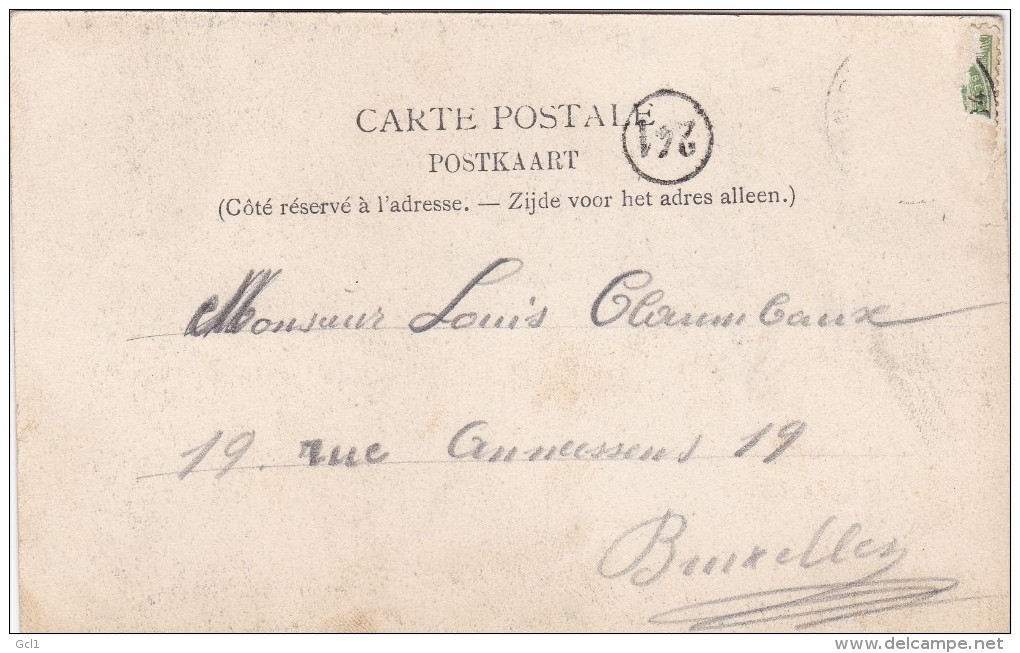 CARTE POSTALE
261
POSTKAART
(Côté réservé à l'adresse. — Zijde voor het adres alleen.)
Monsieur Louis
19. rue Anneessens 19
Bruxelles
Gcl1
www.delcampe.net